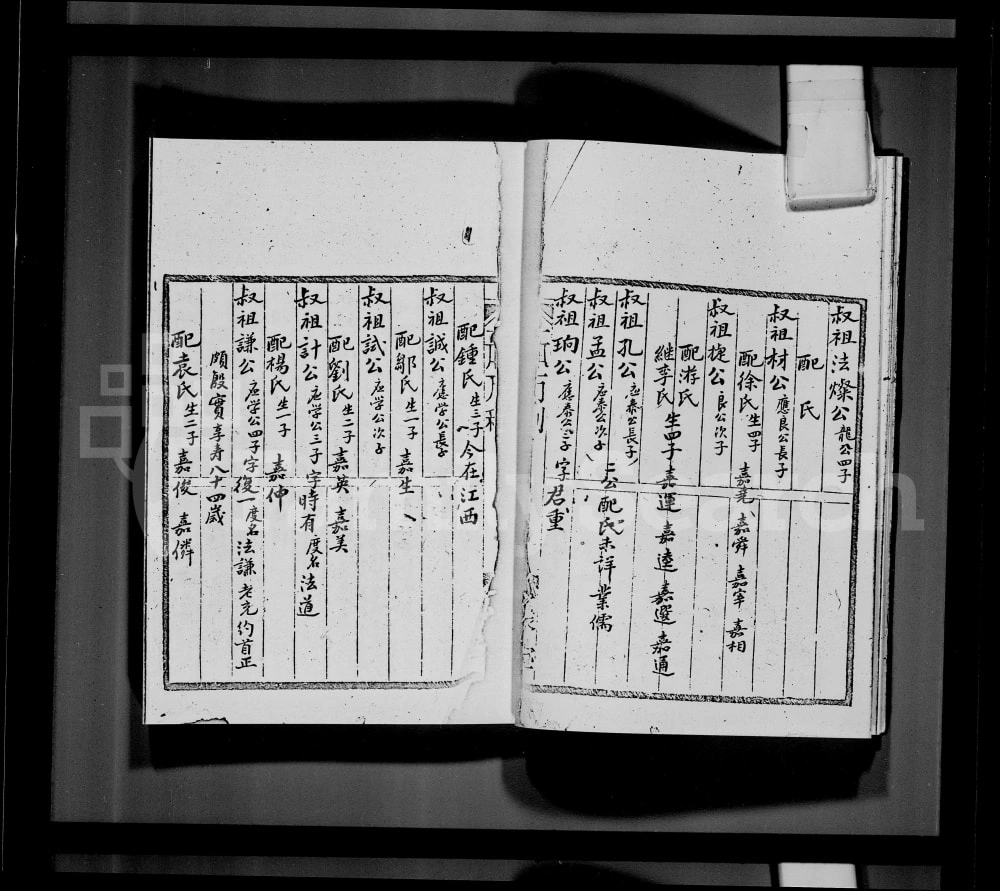 叔祖法燦公龍公四子
配 氏
叔祖材公應良公長子
配徐氏生四子 嘉堯 嘉舜 嘉宰 嘉相
叔祖捷公良公次子
配游氏
継李氏生四子嘉運 嘉逵 嘉選 嘉通
叔祖孔公应泰公長子
叔祖孟公应泰公次子 二公配氏未詳業儒
叔祖珦公應泰公三子字君重
配鍾氏生三子今在江西
叔祖誠公應学公長子
配鄒氏生一子 嘉生
叔祖試公应学公次子
配劉氏生二子嘉英 嘉美
叔祖計公应学公三子字時有度名法道
配楊氏生一子 嘉仲
叔祖謙公应学公四子字復一度名法謙老充約首正
頗殷實享寿八十四歲
配袁氏生二子嘉俊 嘉僯